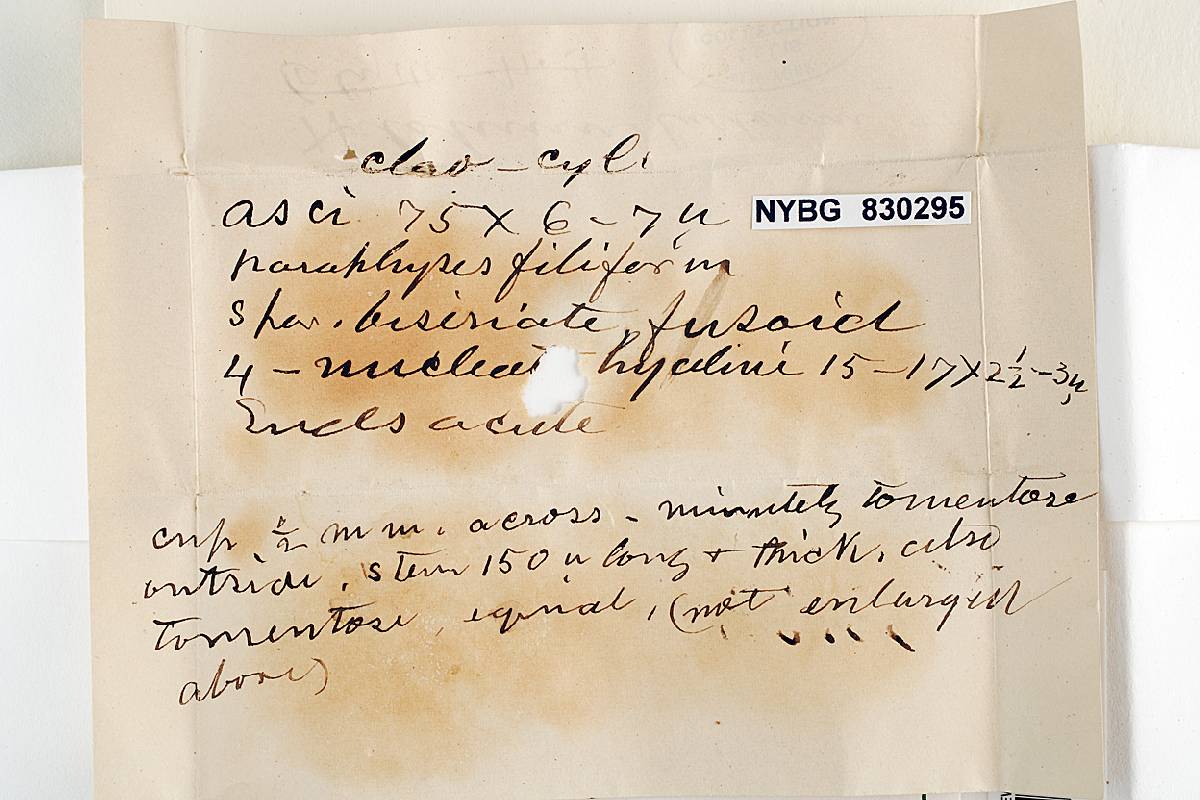 clav - cyl.
asci 75 x 6-7 µ
NYBG 830295
paraphyses filiform
spor. biseriate, fusoid
4-nucleat hyaline 15-17 x 2½-3µ
Ends acute
cup ½ mm. across - minutely tomentose
outside, stem 150 µ long & thick, also
tomentose, equal, (not enlarged
above)